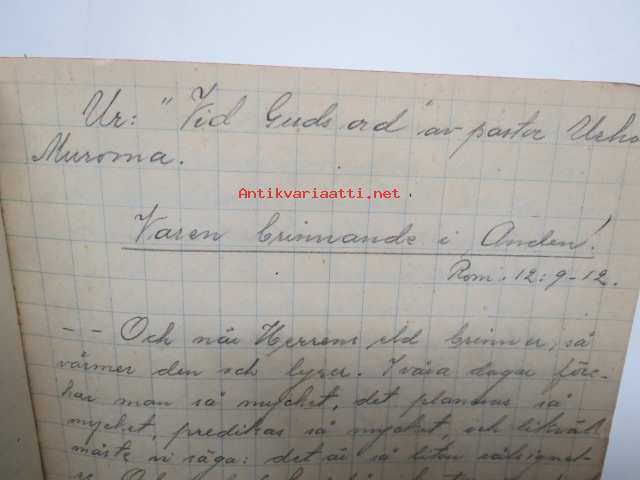 Ur: "Vid Guds ord" av pastor Urho
Muroma.
Antikvariaatti.net
Varen brinnande i Anden!
Rom. 12: 9-12.
-- Och när Herrens eld brinner, så
värmer den och lyser. I våra dagar före-
har man så mycket, det planeras så
mycket, predikas så mycket, och likväl
måste vi säga: det är så liten välsignel-
se. Och